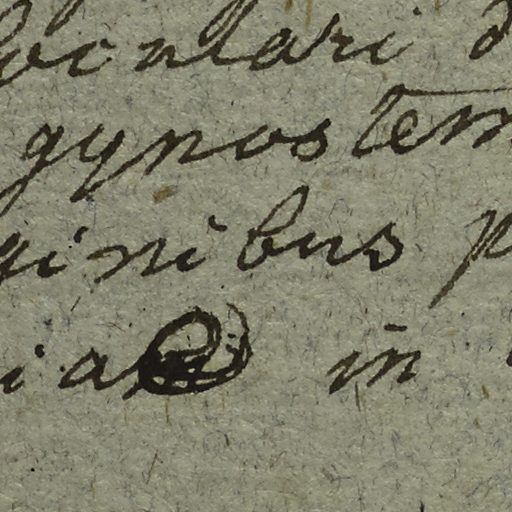 loculari
gynostem
ginibus p
ia in